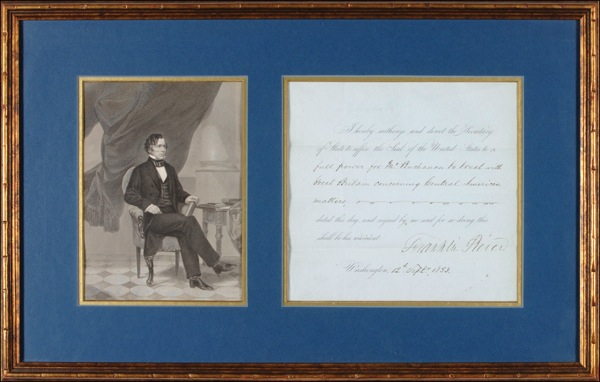 I hereby authorize and direct the Secretary
of State to affix the Seal of the United States to a
full power for Mr. Buchanan to treat with
Great Britain concerning Central American
matters,
dated this day, and signed by me and for so doing this
shall be his warrant.
Franklin Pierce
Washington, 12th Sept., 1853.